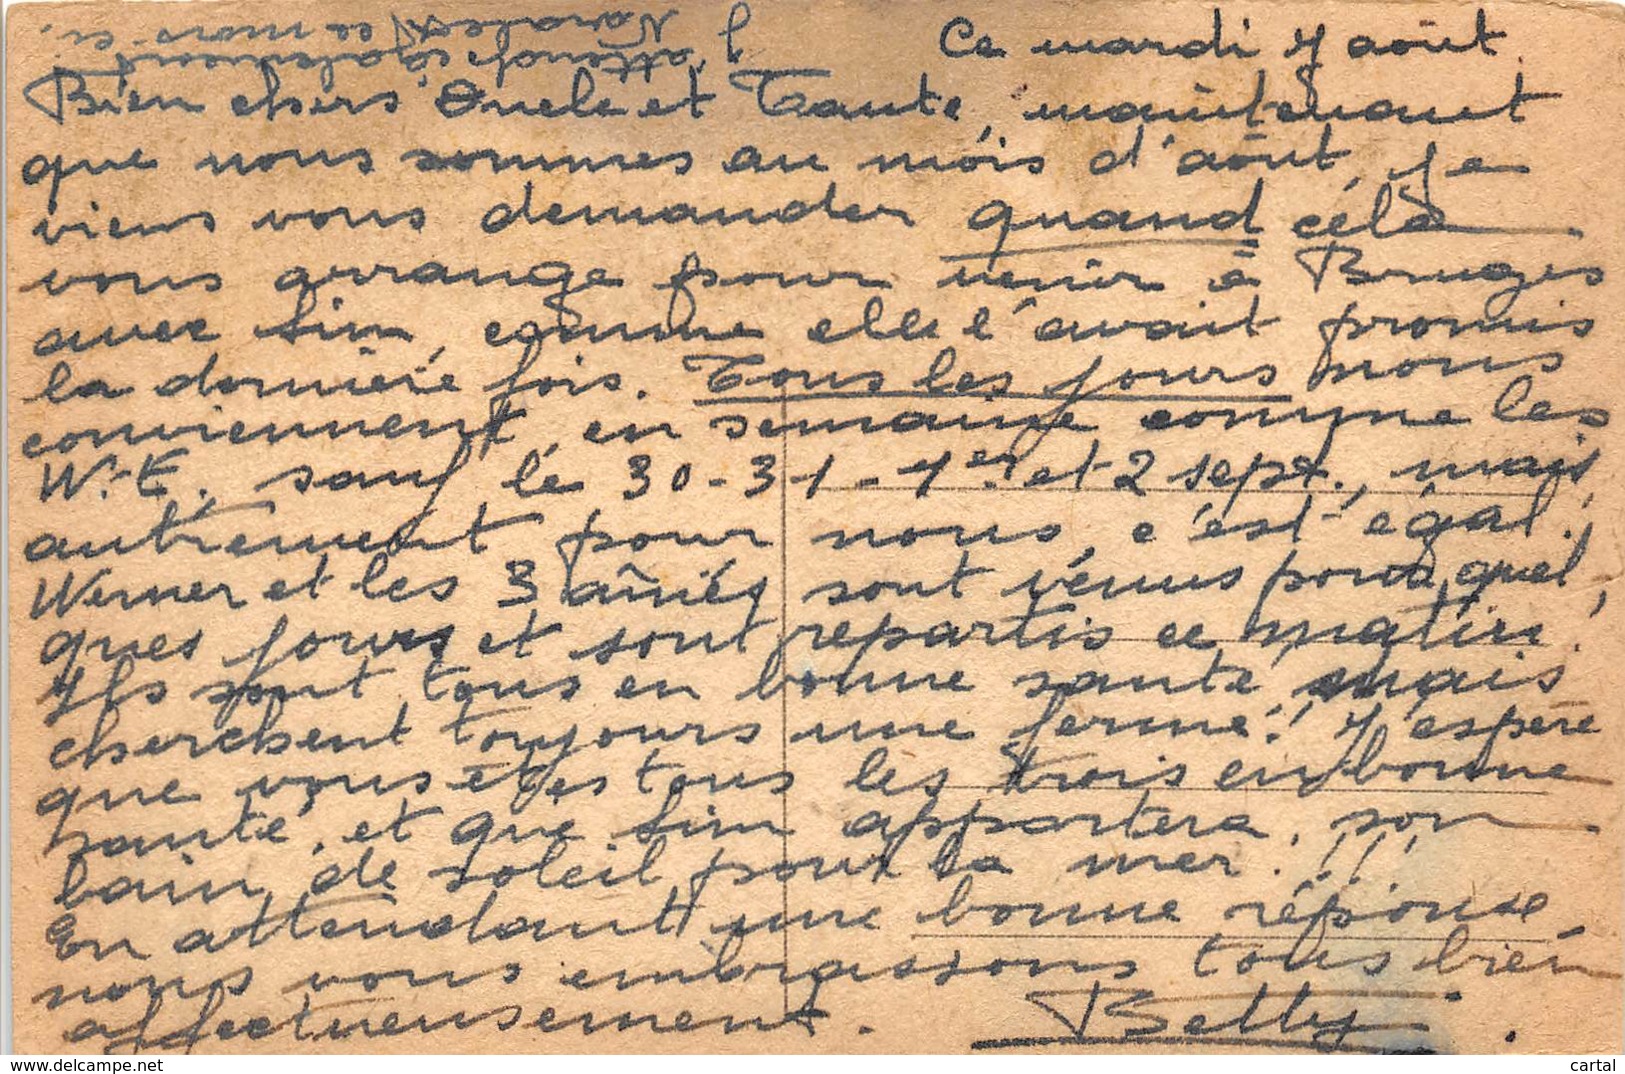 Ce mardi 7 août.
Bien chers Oncle et Tante, maintenant
que nous sommes au mois d'août, je
viens vous demander quand céla
vous arrange pour venir à Bruges
avec Sim, comme elle l'avait promis
la dernière fois. Tous les jours nous
conviennent, en semaine comme les
W.-E., sauf le 30-31-1er et 2 sept., mais
autrement pour nous c'est égal!
Werner et les 3 aînés sont venus pour quel-
ques jours et sont repartis ce matin!
Ils sont tous en bonne santé, mais
cherchent toujours une ferme! J'espère
que vous êtes tous les trois en bonne
santé, et que Sim apportera son
bain de soleil pour la mer!!!
En attendant une bonne réponse
nous vous embrassons tous bien
affectueusement.
Betty.
J'attends également
ce mois-ci.
www.delcampe.net
cartal